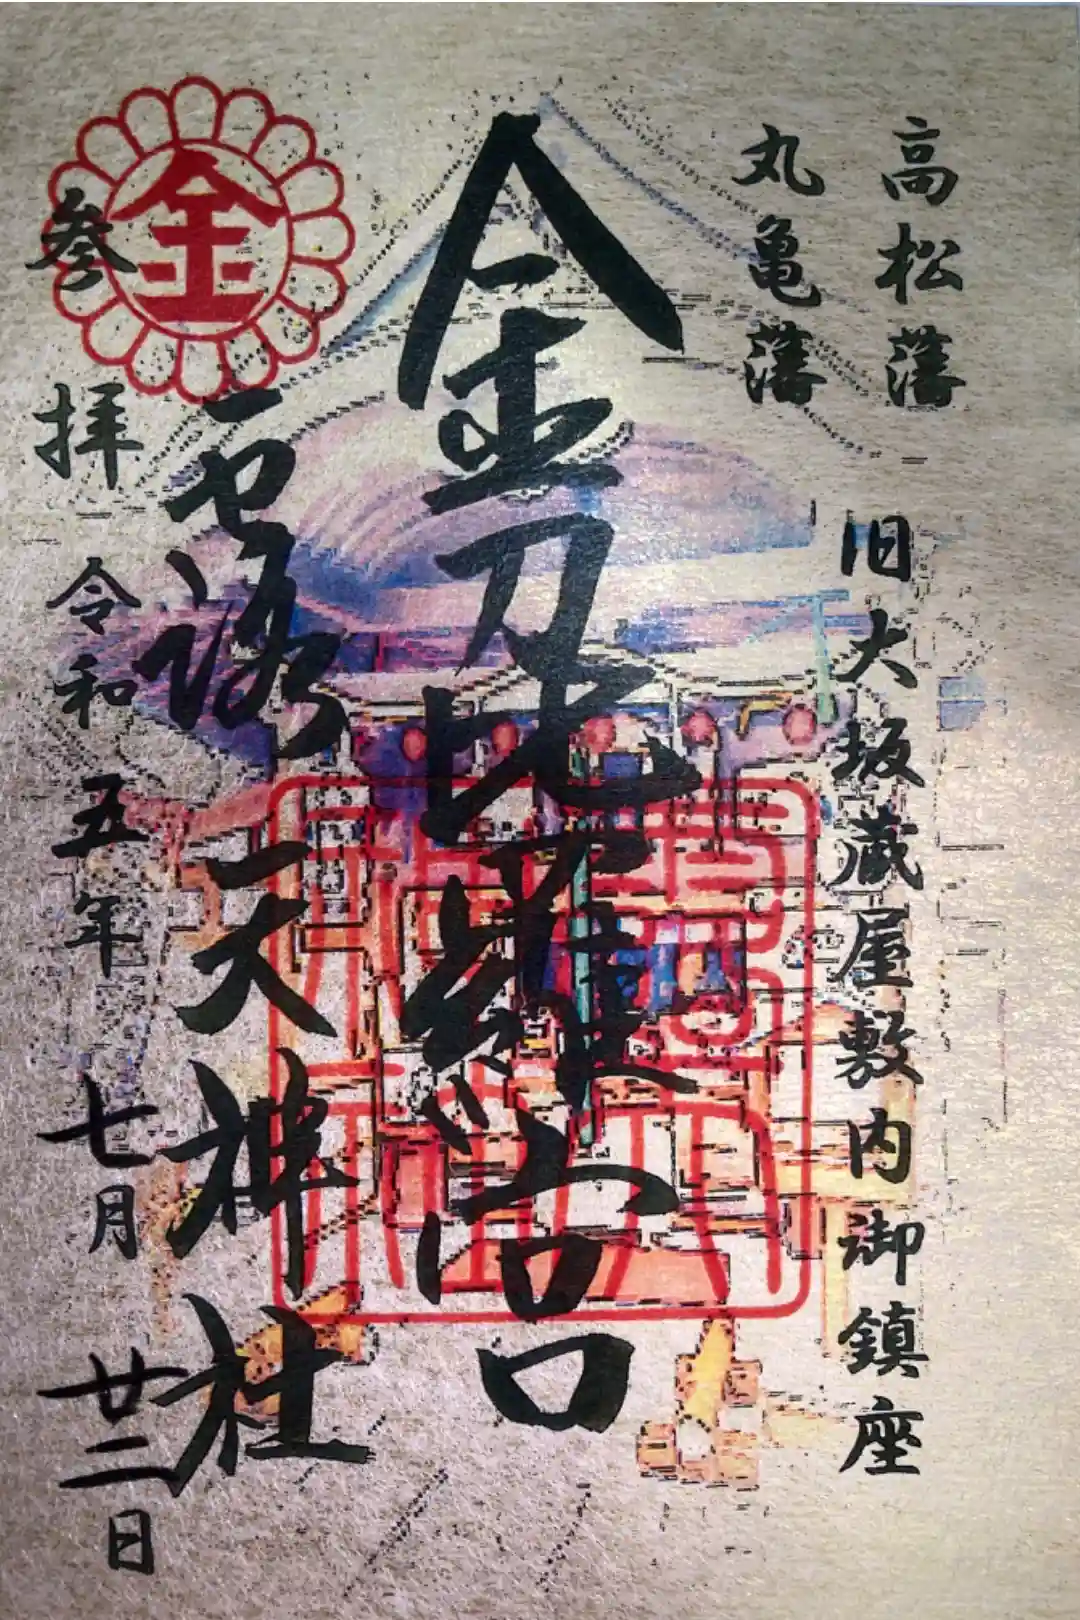 高松藩
丸亀藩
旧大坂蔵屋敷内御鎮座
金刀比羅宮
露天神社
参拝
令和五年七月廿二日
金